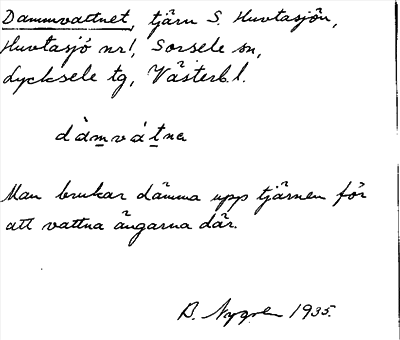 Dammvattnet, tjärn S. Huvtasjön,
Huvtasjö nr 1, Sorsele sn,
Lycksele tg, Västerb. l.
dàmvátnə
Man brukar dämma upp tjärnen för
att vattna ängarna där.
B. Nygren 1935.